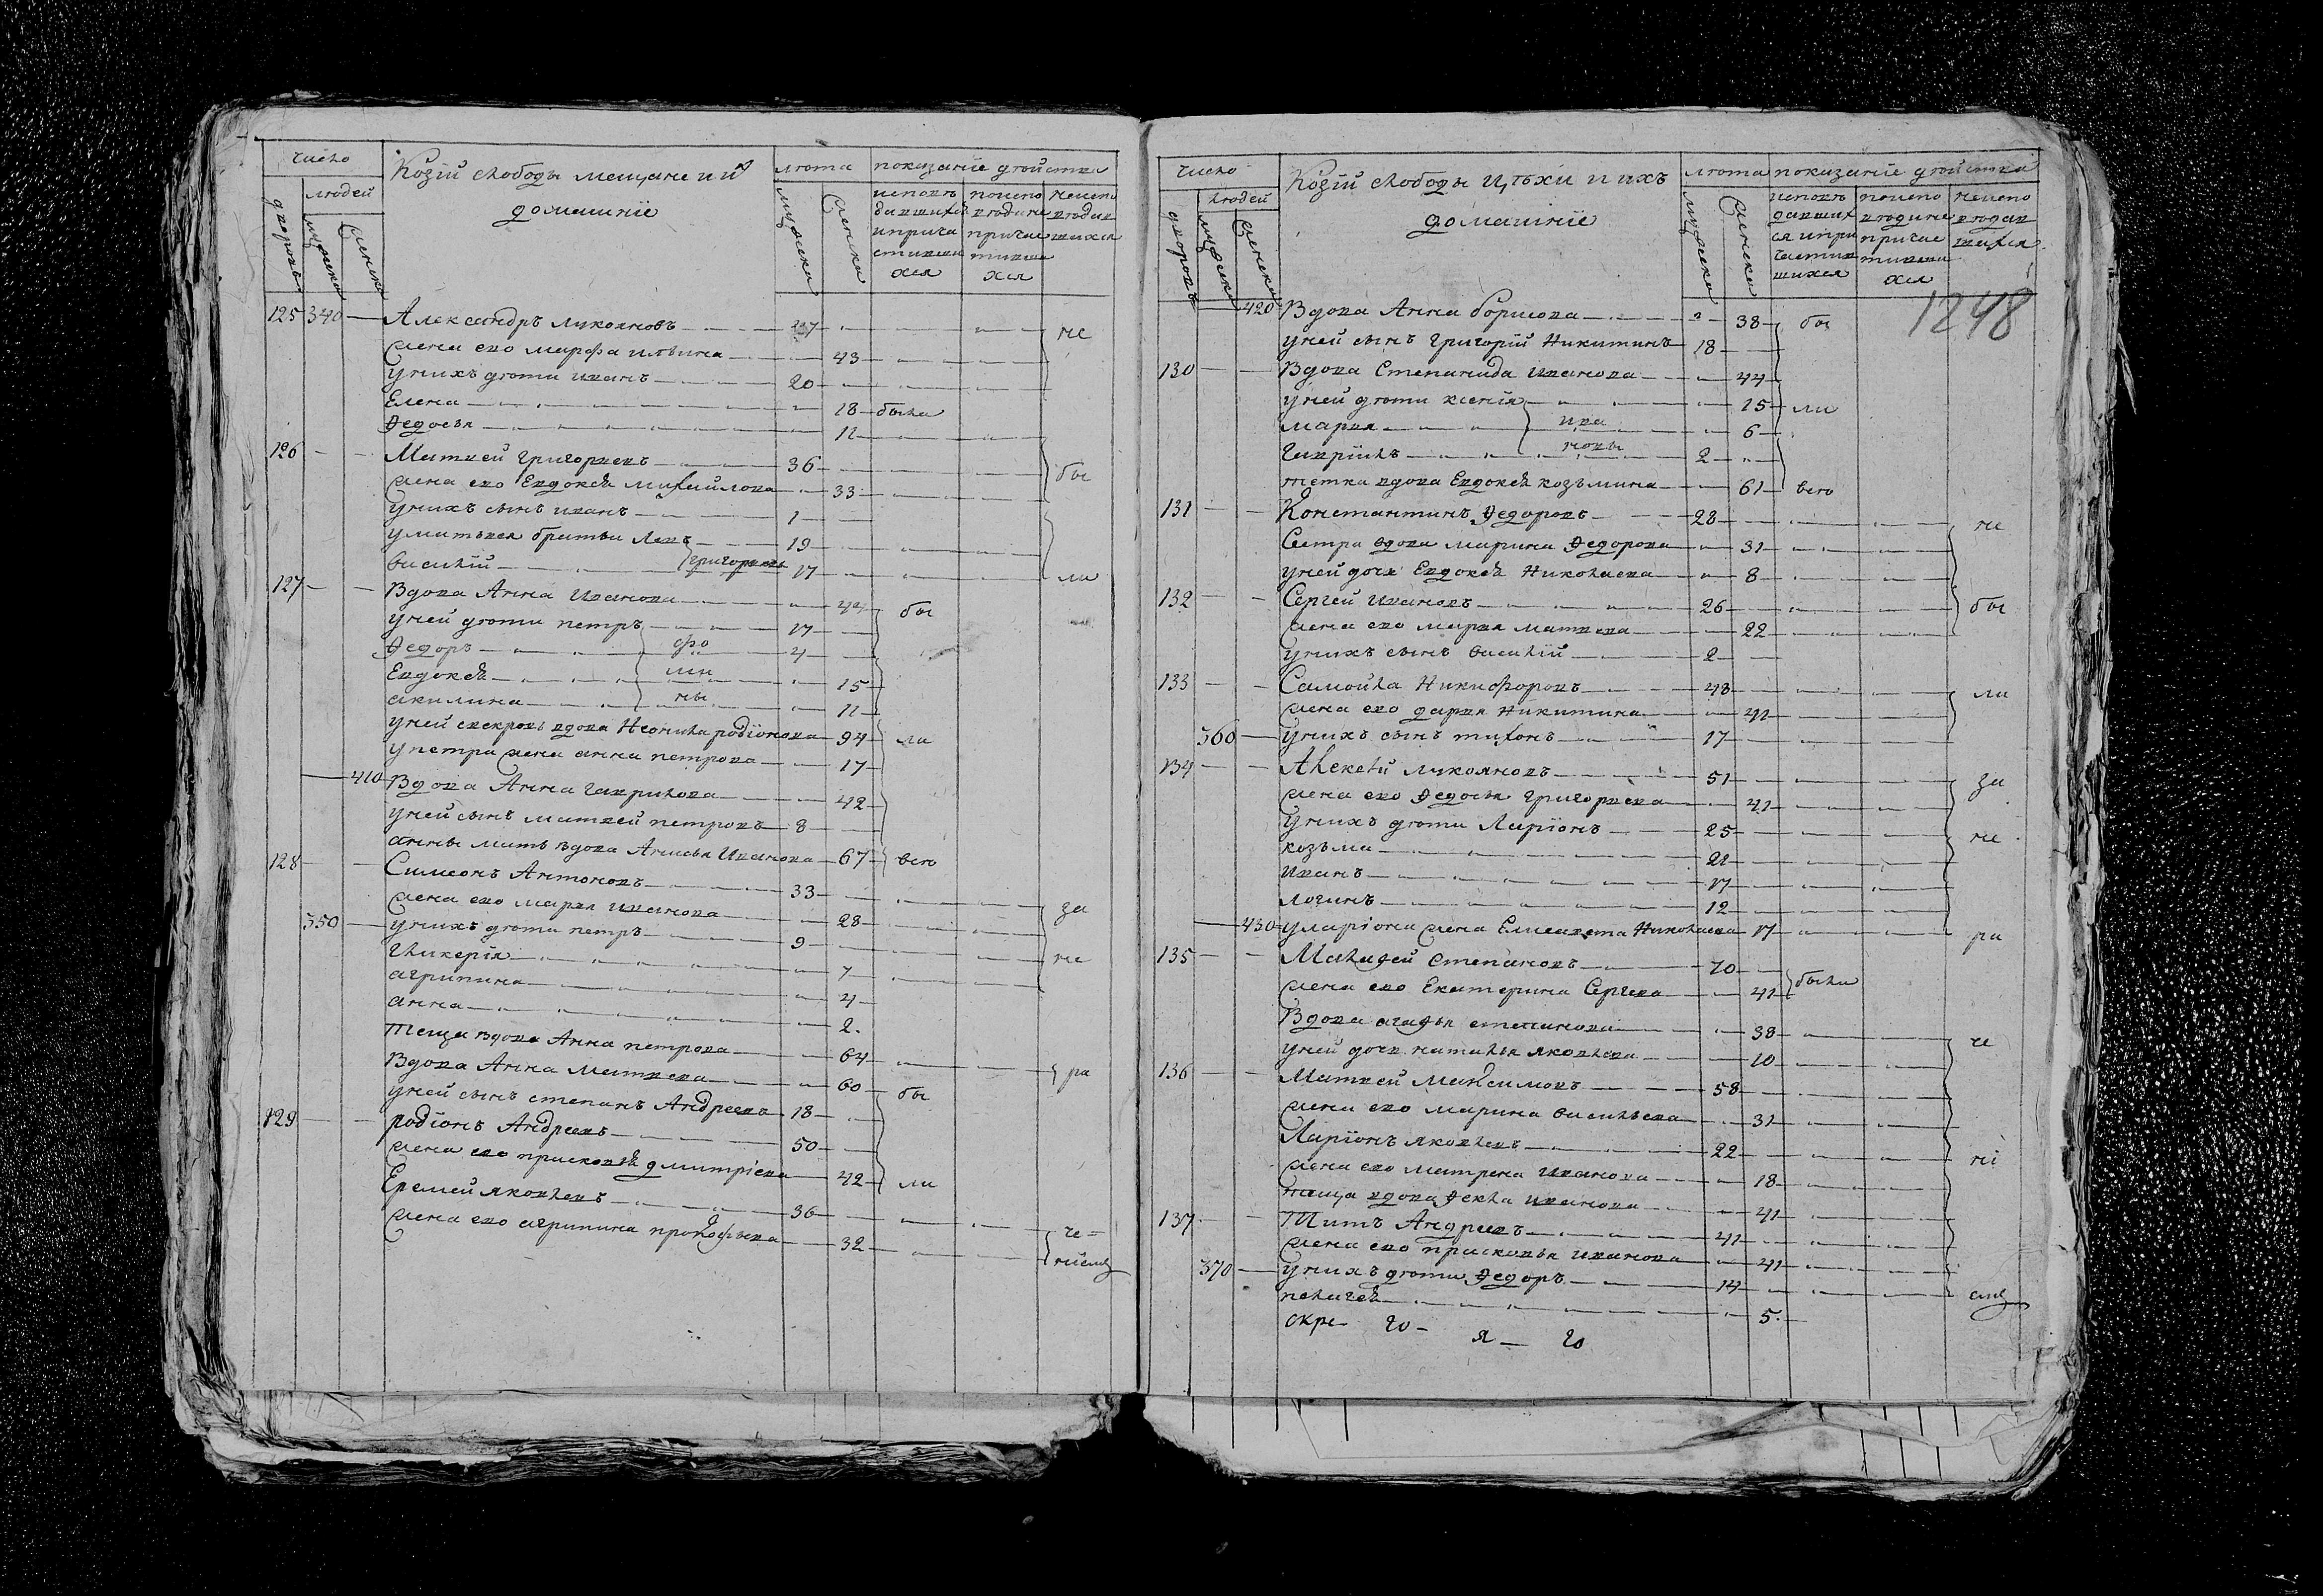 число
Козій слободы мещане и их
лѣта показаніе дѣйства
людей
домашніе
дворовъ
мужеска
женска
мужеска
женска
исповѣ
давшихся
и прича
стивши
хся
по испо
вѣди не
причас
тивши
хся
не испо
вѣдав
шихся
125 340 Александръ Лукояновъ
жена ево марфа ильина 43
у нихъ дѣти иванъ 20
Елена 18 были
Ѳедосья 11
не
126 Матвей Григорьевъ 36
жена ево Евдокѣя михайлова 33
бы
у нихъ сынъ иванъ 1
у матвея братьи Левъ 19
василій григорьевы 17
ли
127 Вдова Анна Иванова 44 бы
у ней дѣти петръ 17
Ѳедоръ фо 4
Евдокѣя ми 15
акилина ны 11
у ней свекровь вдова Неонила родіонова 94 ли
у петра жена анна петрова 17
410 Вдова Анна Гаврилова 42
у ней сынъ матвей петровъ 8
анны мать вдова Анисья Иванова 67 всю
128 Симеонъ Антоновъ 33
за
жена ево марья иванова 28
350 у нихъ дѣти петръ 9
не
гликерія 7
агрипина 4
анна 2
теща вдова Анна петрова 64
ра
Вдова Анна Матвеева 60 бы
у ней сынъ степанъ Андреевъ 18
129 родіонъ Андреевъ 50
жена ево прасковѣя дмитріева 42 ли
Еремей яковлевъ 36
жена ево агрипина прокофьева 32
че=
ніемъ
число
Козій слободы цѣхи и ихъ
лѣта показаніе дѣйства
людей
домашніе
дворовъ
мужеска
женска
мужеска
женска
исповѣ
давших
ся и при
частив
шихся
по испо
вѣди не
причас
тивши
хся
не испо
вѣдав
шихся
1248
420 Вдова Анна борисова 38 бы
у ней сынъ григорій Никитинъ 18
130 Вдова Степанида иванова 44
у ней дѣти ксенія 15 ли
марья ива 6
гавріилъ новы 2
тетка вдова Евдокѣя козьмина 61 всю
131 Константинъ Ѳедоровъ 28
не
Сестра вдова марина Ѳедорова 31
у ней дочь Евдокѣя Николаева 8
132 Сергей Ивановъ 26 бы
жена ево марья матвеева 22
у нихъ сынъ василій 2
133 Самойла Никифоровъ 48 ли
жена ево дарья Никитина 41
360 у нихъ сынъ тихонъ 17
134 Алексѣй Лукояновъ 51 за
жена ево Ѳедосья григорьева 41
у нихъ дѣти Ларіонъ 25
не
козьма 21
Иванъ 17
логинъ 12
430 у ларіона жена Елисавета Николаева 17 ра
135 Малафей степановъ 70
были
жена ево Екатерина Сергеева 41
Вдова агафья степанова 38
че
у ней дочь наталья яковлева 10
136 Матвей Максимовъ 58
жена ево марина васильева 31
Ларіонъ яковлевъ 22
ні
жена ево матрена иванова 18
теща вдова Ѳекла иванова 41
137 Титъ Андреевъ 41
жена ево прасковья иванова 41
370 у нихъ дѣти Ѳедоръ 14 емъ
пелагея 5
скре- го- я- го